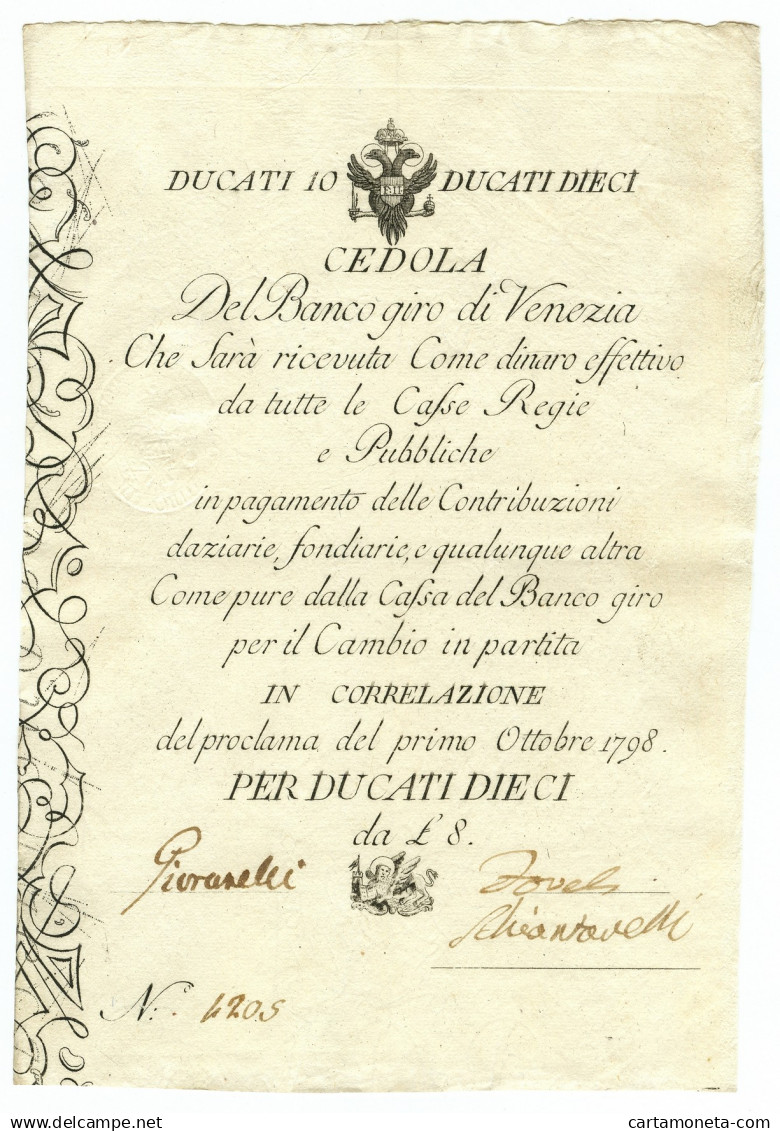 DUCATI 10 DUCATI DIECI
F II
CEDOLA
Del Banco giro di Venezia
Che Sarà ricevuta Come dinaro effettivo
da tutte le Caſse Regie
e Pubbliche
in pagamento delle Contribuzioni
daziarie, fondiarie, e qualunque altra
Come pure dalla Caſsa del Banco giro
per il Cambio in partita
IN CORRELAZIONE
del proclama del primo Ottobre 1798.
PER DUCATI DIECI
da £ 8.
Giovanelli
N.º 4205
www.delcampe.net
cartamoneta-com